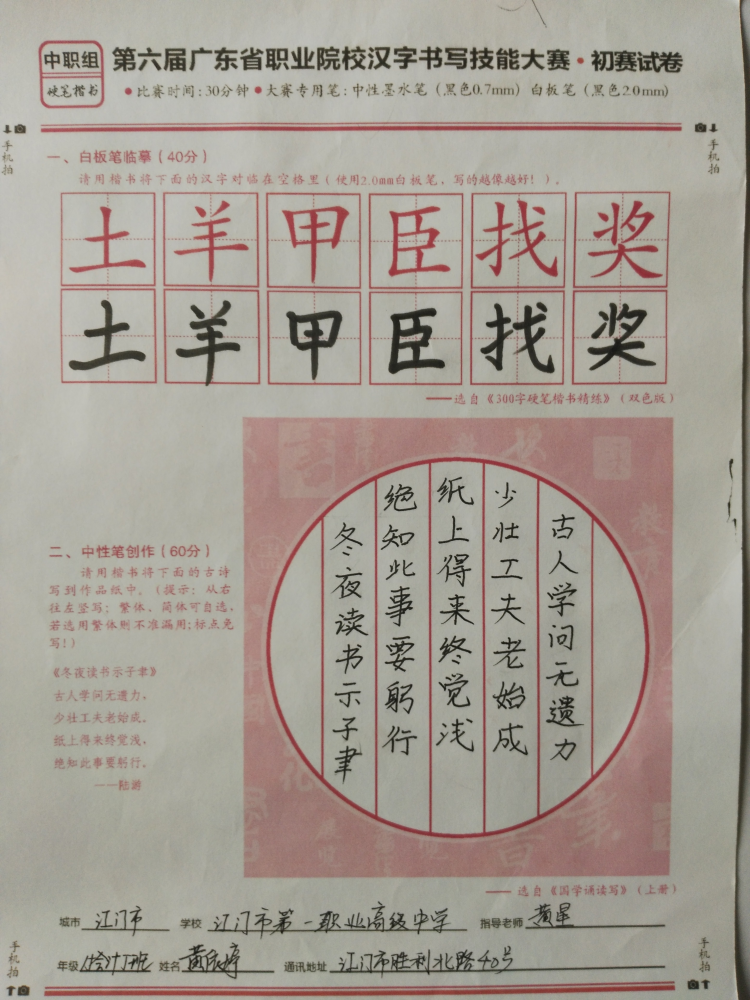 中职组
硬笔楷书
第六届广东省职业院校汉字书写技能大赛·初赛试卷
●比赛时间:30分钟●大赛专用笔:中性墨水笔(黑色0.7mm) 白板笔(黑色2.0mm)
手机拍
手机拍
一、白板笔临摹(40分)
请用楷书将下面的汉字对临在空格里(使用2.0mm白板笔,写的越像越好!)。
土羊甲臣找奖
土羊甲臣找奖
——选自《300字硬笔楷书精练》(双色版)
二、中性笔创作(60分)
请用楷书将下面的古诗
写到作品纸中。(提示:从右
往左竖写;繁体、简体可自选,
若选用繁体则不准漏用;标点免
写!)
《冬夜读书示子聿》
古人学问无遗力,
少壮工夫老始成。
纸上得来终觉浅,
绝知此事要躬行。
——陆游
古人学问无遗力
少壮工夫老始成
纸上得来终觉浅
绝知此事要躬行
冬夜读书示子聿
——选自《国学诵读写》(上册)
城市 江门市 学校 江门市第一职业高级中学 指导老师 黄星
年级 姓名 黄 通讯地址 江门市胜利北路40号
手机拍
手机拍